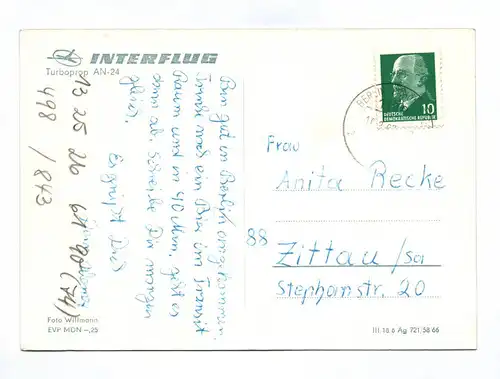 INTERFLUG
Turboprop AN-24
Bin gut in Berlin angekommen.
Trinke noch ein Bier im Transit
Raum und in 40 Min. geht es
dann ab. Schreibe Dir morgen
gleich.
Es grüßt Dich
13 25 226 61 90 (74)
498 / 843
Foto Willmann
EVP MDN –,25
10
DEUTSCHE
DEMOKRATISCHE REPUBLIK
BERLIN
Frau
Anita Recke
88
Zittau/Sa
Stephanstr. 20
III 18 6 Ag 721/58/66